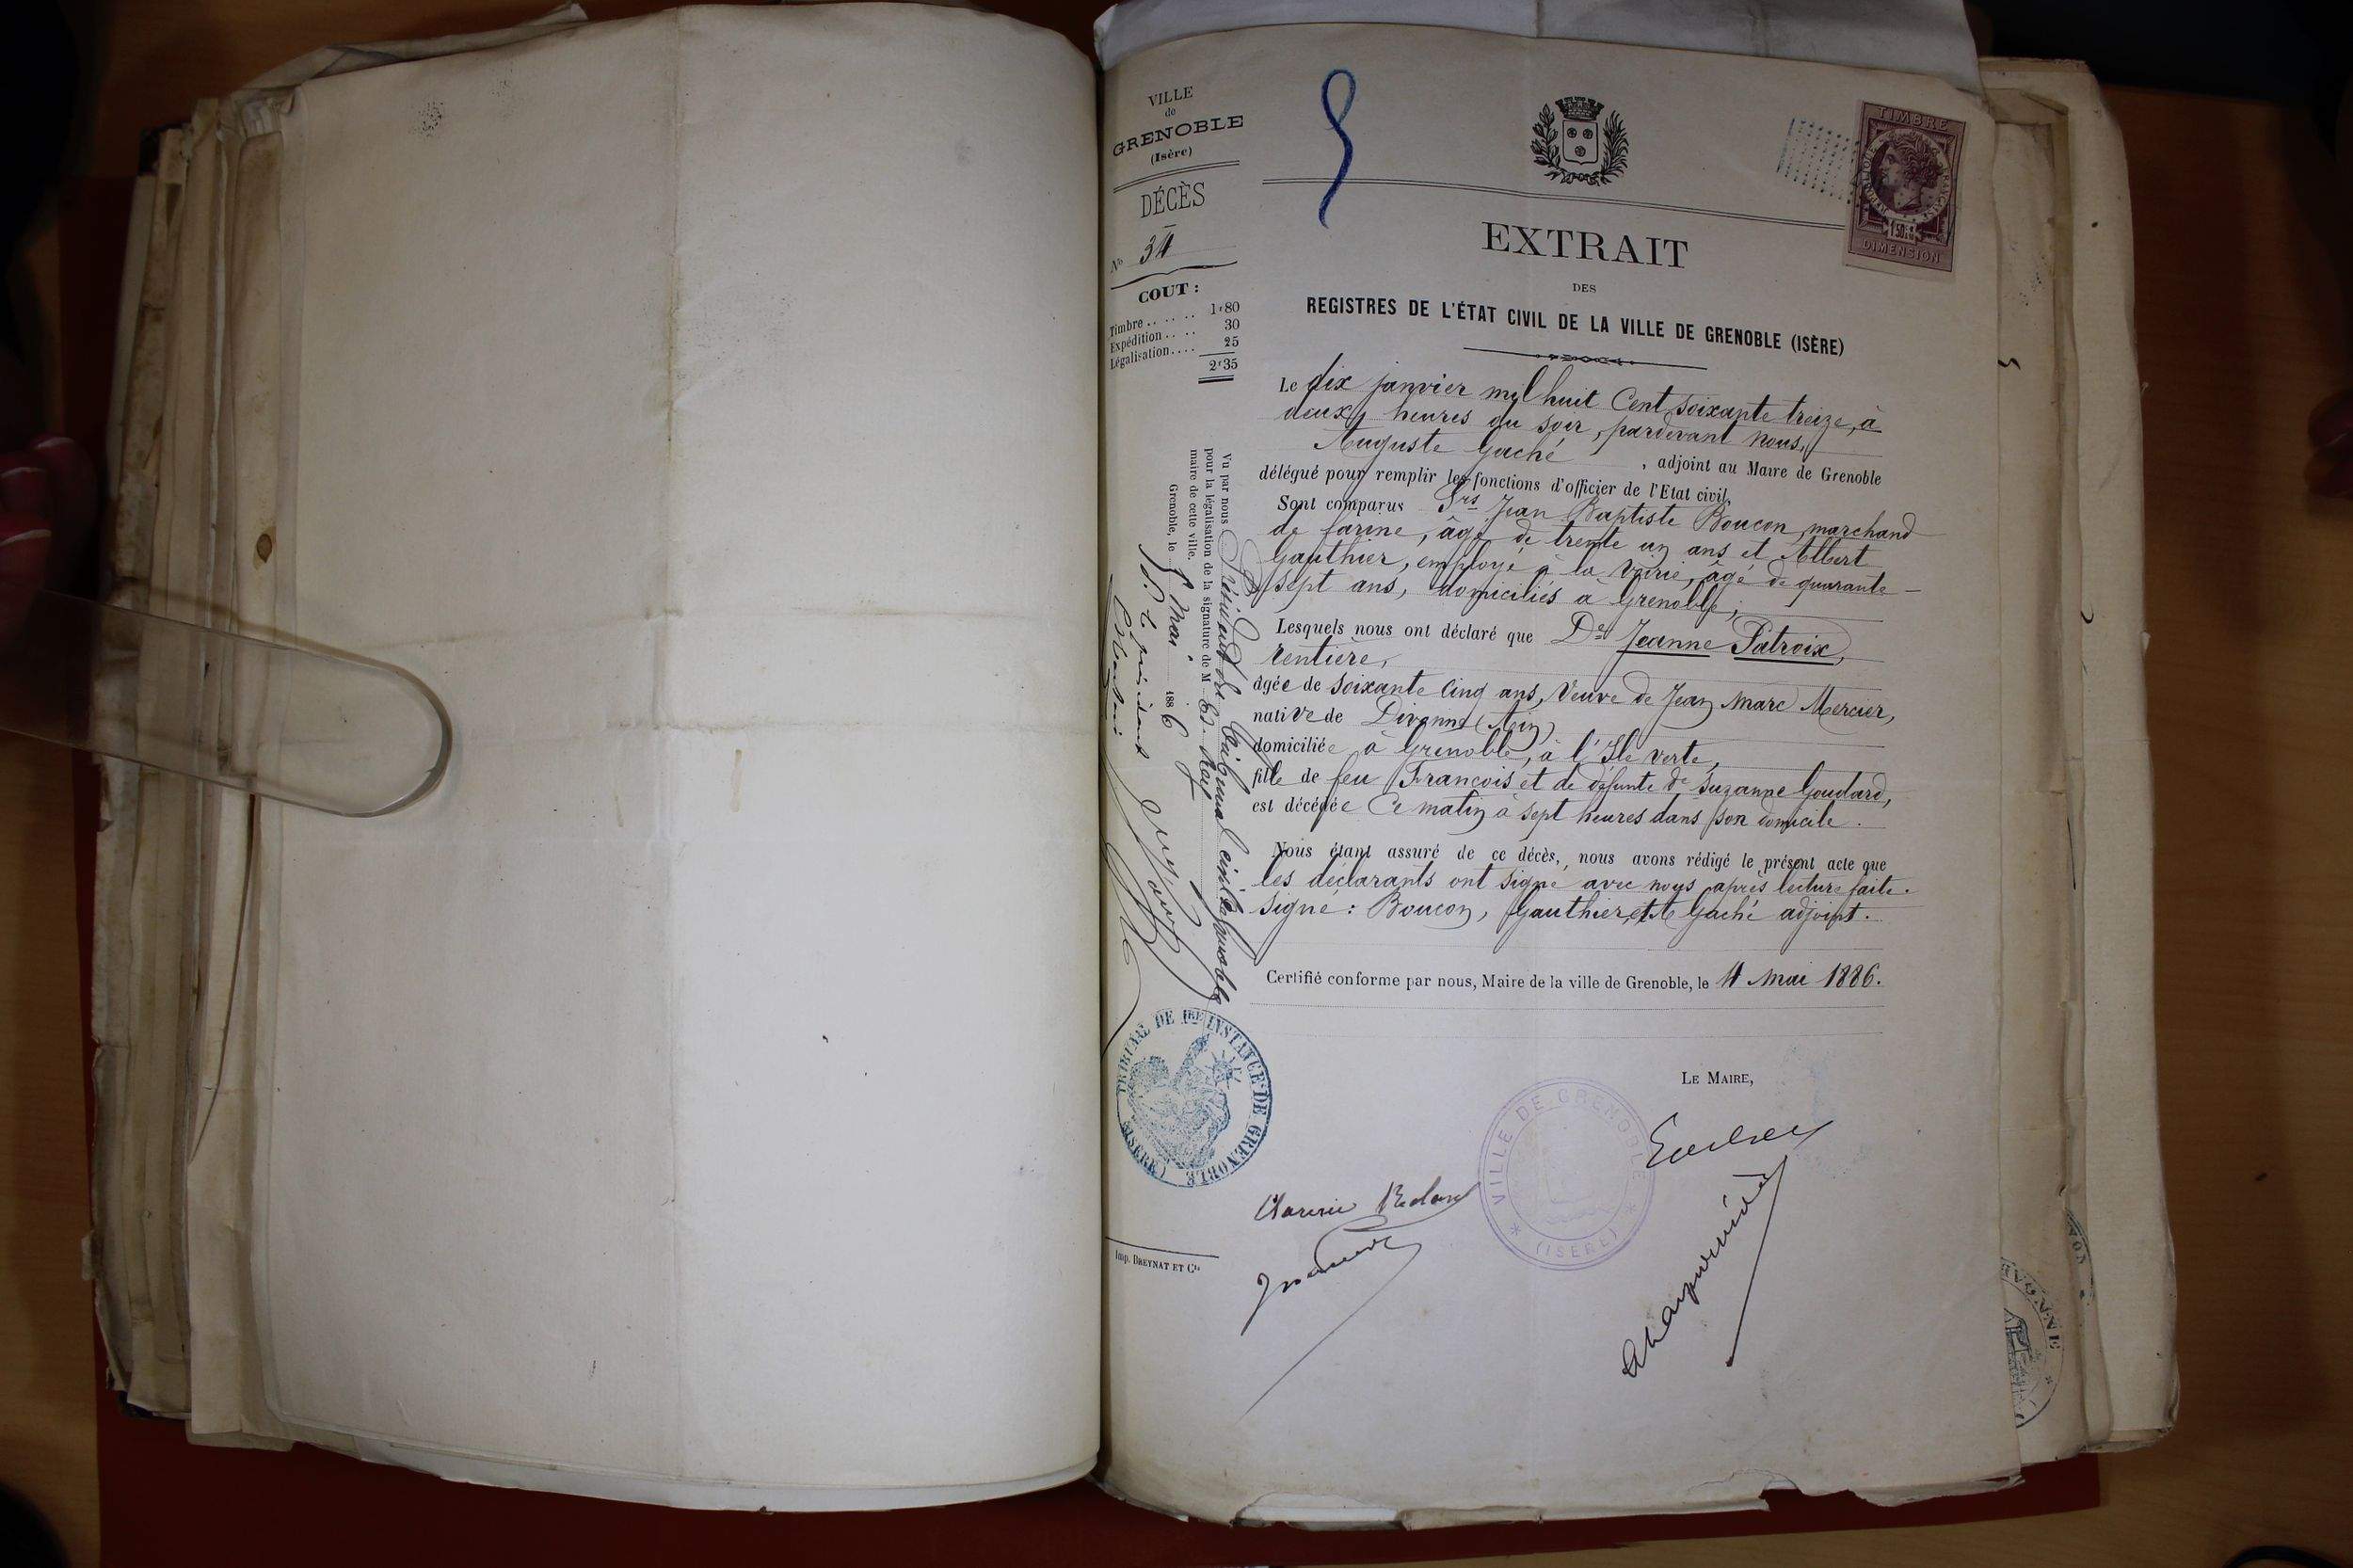 VILLE
de
GRENOBLE
(Isère)
DÉCÈS
No 34
COUT :
Timbre .. .. .. 1f80
Expédition .. .. 30
Légalisation.... 25
2f35
Vu par nous Président du Tribunal civil de Grenoble
pour la légalisation de la signature de M
maire de cette ville.
Grenoble, le 5 Mai 1886
TRIBUNAL DE 1RE INSTANCE DE GRENOBLE
(ISÈRE)
Imp. BREYNAT ET Cie
TIMBRE
DIMENSION
EXTRAIT
DES
REGISTRES DE L'ÉTAT CIVIL DE LA VILLE DE GRENOBLE (ISÈRE)
Le dix janvier mil huit cent soixante treize, à
deux heures du soir, pardevant nous,
Auguste Gaché , adjoint au Maire de Grenoble
délégué pour remplir les fonctions d'officier de l'Etat civil,
Sont comparus Srs Jean Baptiste Boucon, marchand
de farine, âgé de trente un ans et Albert
Gauthier, employé à la voirie, âgé de quarante-
sept ans, domiciliés à Grenoble;
Lesquels nous ont déclaré que De Jeanne Patroix,
rentière,
âgée de soixante cinq ans, veuve de Jean Marc Mercier,
native de Divonne (Ain)
domiciliée à Grenoble, à l'Ile verte,
fille de feu François et de défunte De Suzanne Goudard,
est décédée ce matin à sept heures dans son domicile.
Nous étant assuré de ce décès, nous avons rédigé le présent acte que
les déclarants ont signé avec nous après lecture faite.
Signé : Boucon, Gauthier, et A Gaché adjoint.
Certifié conforme par nous, Maire de la ville de Grenoble, le 4 mai 1886.
LE MAIRE,
VILLE DE GRENOBLE
(ISÈRE)